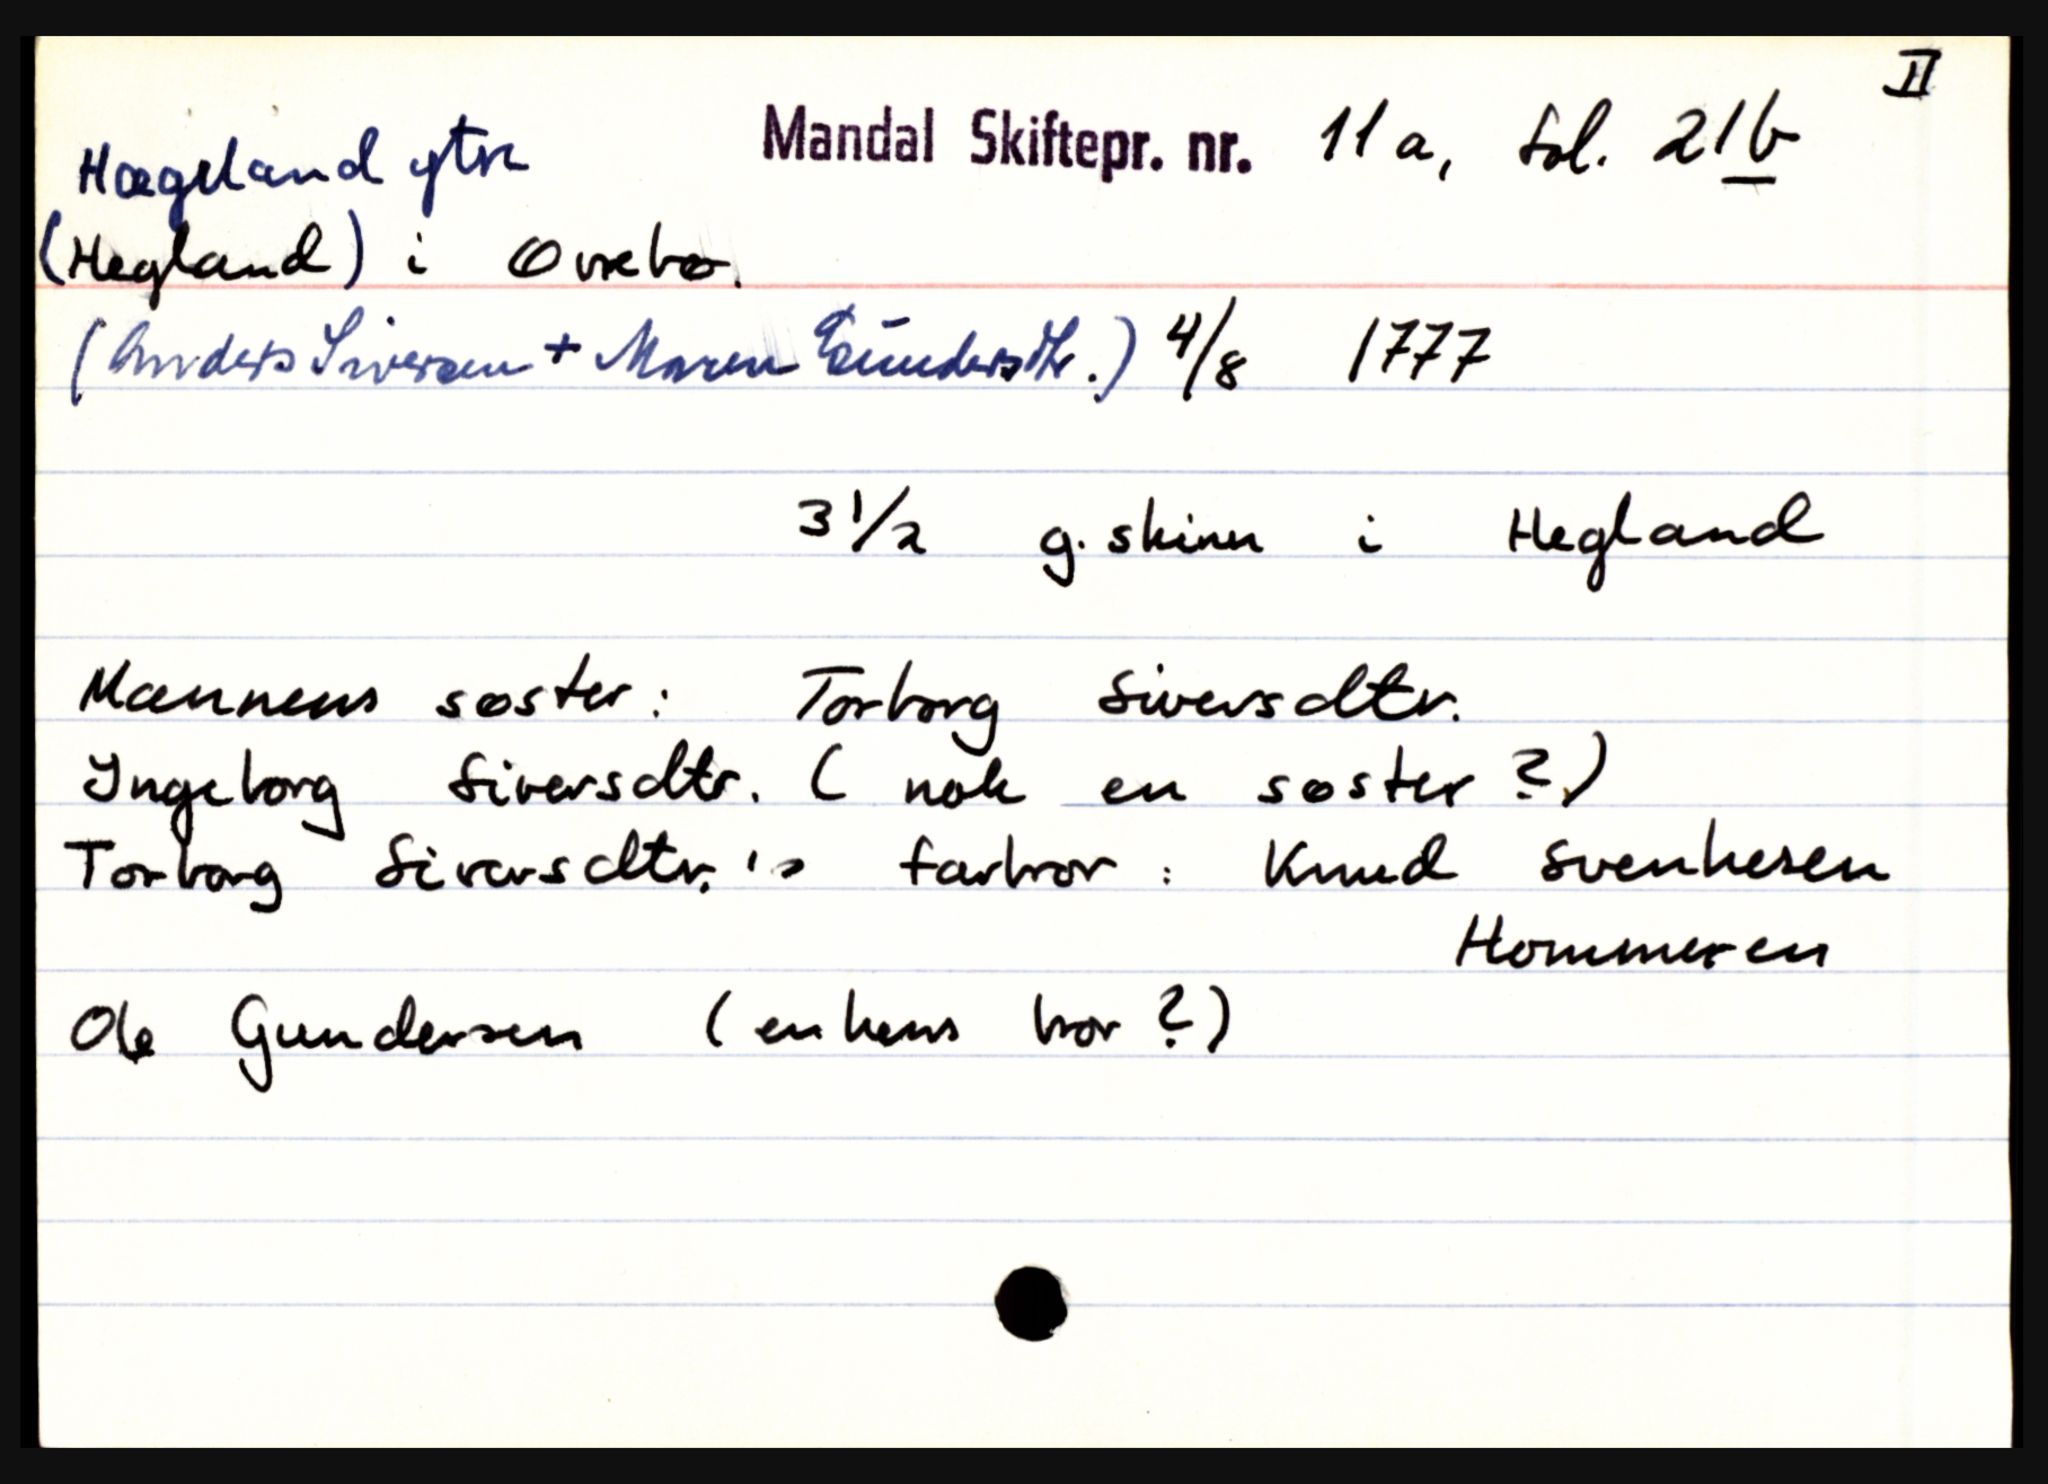 II
Hægeland ytre Mandal Skiftepr. nr. 11a, fol. 21b
(Hegland) i Øvrebø.
(Anders Siversen + Maren Gundersdtr.) 4/8 1777
3 1/2 g. skinn i Hegland
Mannens søster: Torborg Siversdtr.
Ingeborg Siversdtr. (nok en søster?)
Torborg Siversdtr.'s farbror: Knud Svenkesen
Hommeren
Ole Gundersen (enkens bror?)